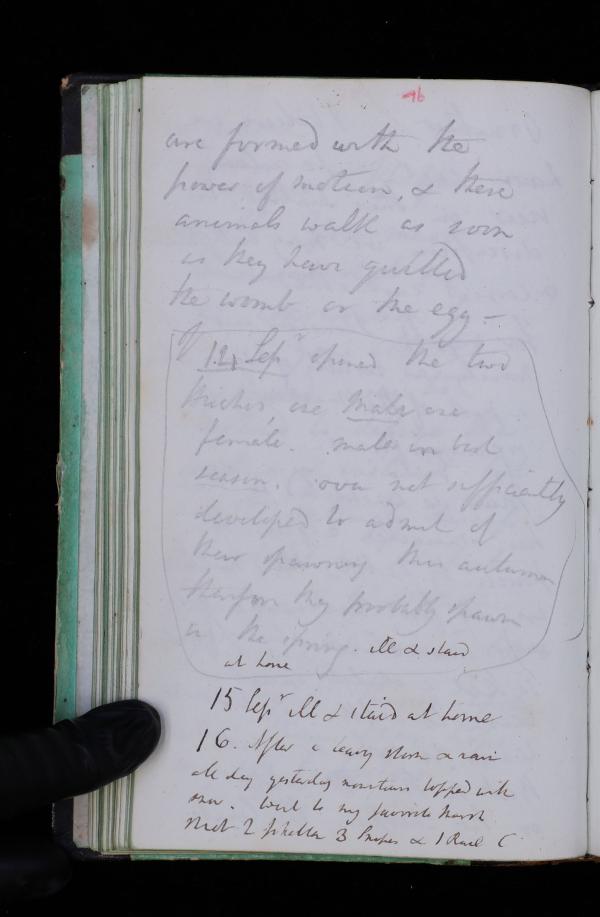 46
are formed with the
power of motion, & these
animals walk as soon
as they have quitted
the womb or the egg –
14 Sepr opened the two
one Male one
female. male in best
season. ova not sufficiently
developed to admit of
their spawning this autumn
therefore they probably spawn
in the spring. ill & staid
at home
15 Sepr ill & staid at home
16. After a heavy storm & rain
all day yesterday mountains topped with
snow. Went to my favorite marsh
shot 3 Snipes & 1 Rail